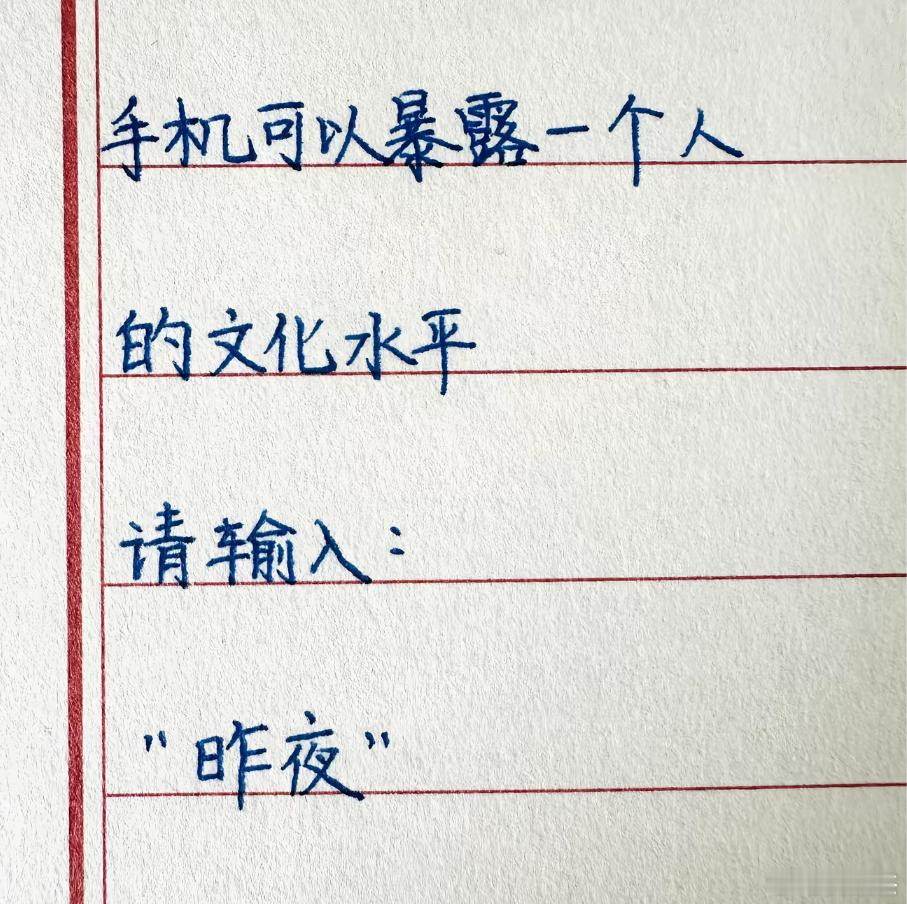 手机可以暴露一个人
的文化水平
请输入：
"昨夜"